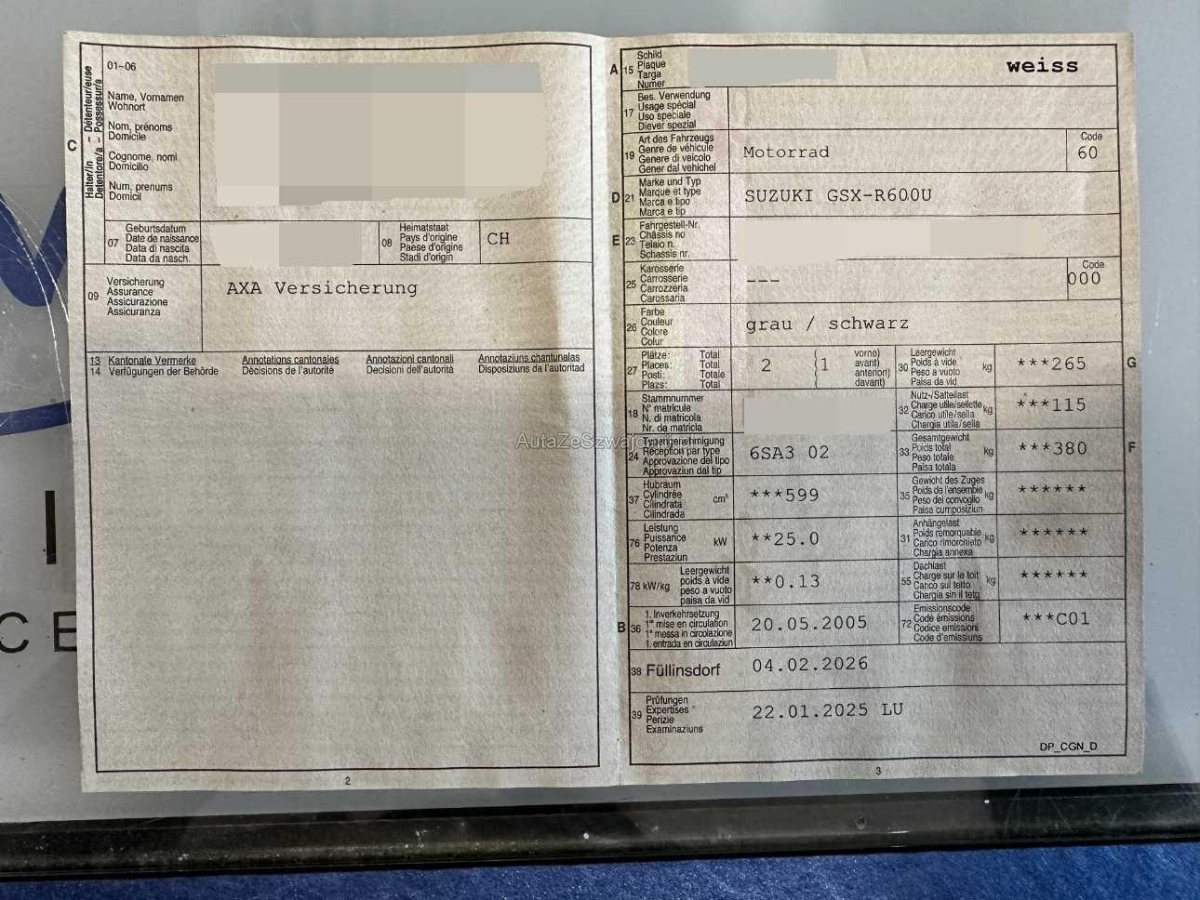 01-06
Halter/in – Détenteur/euse
Detentore/a – Possessur/a
C
Name, Vornamen
Wohnort
Nom, prénoms
Domicile
Cognome, nomi
Domicilio
Num, prenums
Domicil
07
Geburtsdatum
Date de naissance
Data di nascita
Data da nasch.
08
Heimatstaat
Pays d'origine
Paese d'origine
Stadi d'origin
CH
09
Versicherung
Assurance
Assicurazione
Assicuranza
AXA Versicherung
13 Kantonale Vermerke Annotations cantonales Annotazioni cantonali Annotaziuns chantunalas
14 Verfügungen der Behörde Décisions de l'autorité Decisioni dell'autorità Disposiziuns da l'autoritad
2
A 15
Schild
Plaque
Targa
Numer
weiss
17
Bes. Verwendung
Usage spécial
Uso speciale
Diever spezial
19
Art des Fahrzeugs
Genre de véhicule
Genere di veicolo
Gener dal vehichel
Motorrad
Code
60
D 21
Marke und Typ
Marque et type
Marca e tipo
Marca e tip
SUZUKI GSX-R600U
E 23
Fahrgestell-Nr.
Châssis no
Telaio n.
Schassis nr.
25
Karosserie
Carrosserie
Carrozzeria
Carossaria
---
Code
000
26
Farbe
Couleur
Colore
Colur
grau / schwarz
27
Plätze: Total
Places: Total
Posti: Totale
Plazs: Total
2 (1
vorne)
avant)
anteriori)
davant)
30
Leergewicht
Poids à vide
Peso a vuoto
Paisa da vid
kg
***265
G
18
Stammnummer
N° matricule
N. di matricola
Nr. da matricla
32
Nutz-/Sattellast
Charge utile/sellette
Carico utile/sella
Chargia utila/sella
kg
***115
24
Typengenehmigung
Réception par type
Approvazione del tipo
Approvaziun dal tip
6SA3 02
33
Gesamtgewicht
Poids total
Peso totale
Paisa totala
kg
***380
F
37
Hubraum
Cylindrée
Cilindrata
Cilindrada
cm³
***599
35
Gewicht des Zuges
Poids de l'ensemble
Peso del convoglio
Paisa cumposiziun
kg
******
76
Leistung
Puissance
Potenza
Prestaziun
kW
**25.0
31
Anhängelast
Poids remorquable
Carico rimorchiato
Chargia annexa
kg
******
78 kW/kg
Leergewicht
poids à vide
peso a vuoto
paisa da vid
**0.13
55
Dachlast
Charge sur le toit
Carico sul tetto
Chargia sin il tetg
kg
******
B 36
1. Inverkehrsetzung
1re mise en circulation
1a messa in circolazione
1. entrada en circulaziun
20.05.2005
72
Emissionscode
Code émissions
Codice emissioni
Code d'emissiuns
***C01
38 Füllinsdorf 04.02.2026
39
Prüfungen
Expertises
Perizie
Examinaziuns
22.01.2025 LU
DP_CGN_D
3
I
CE